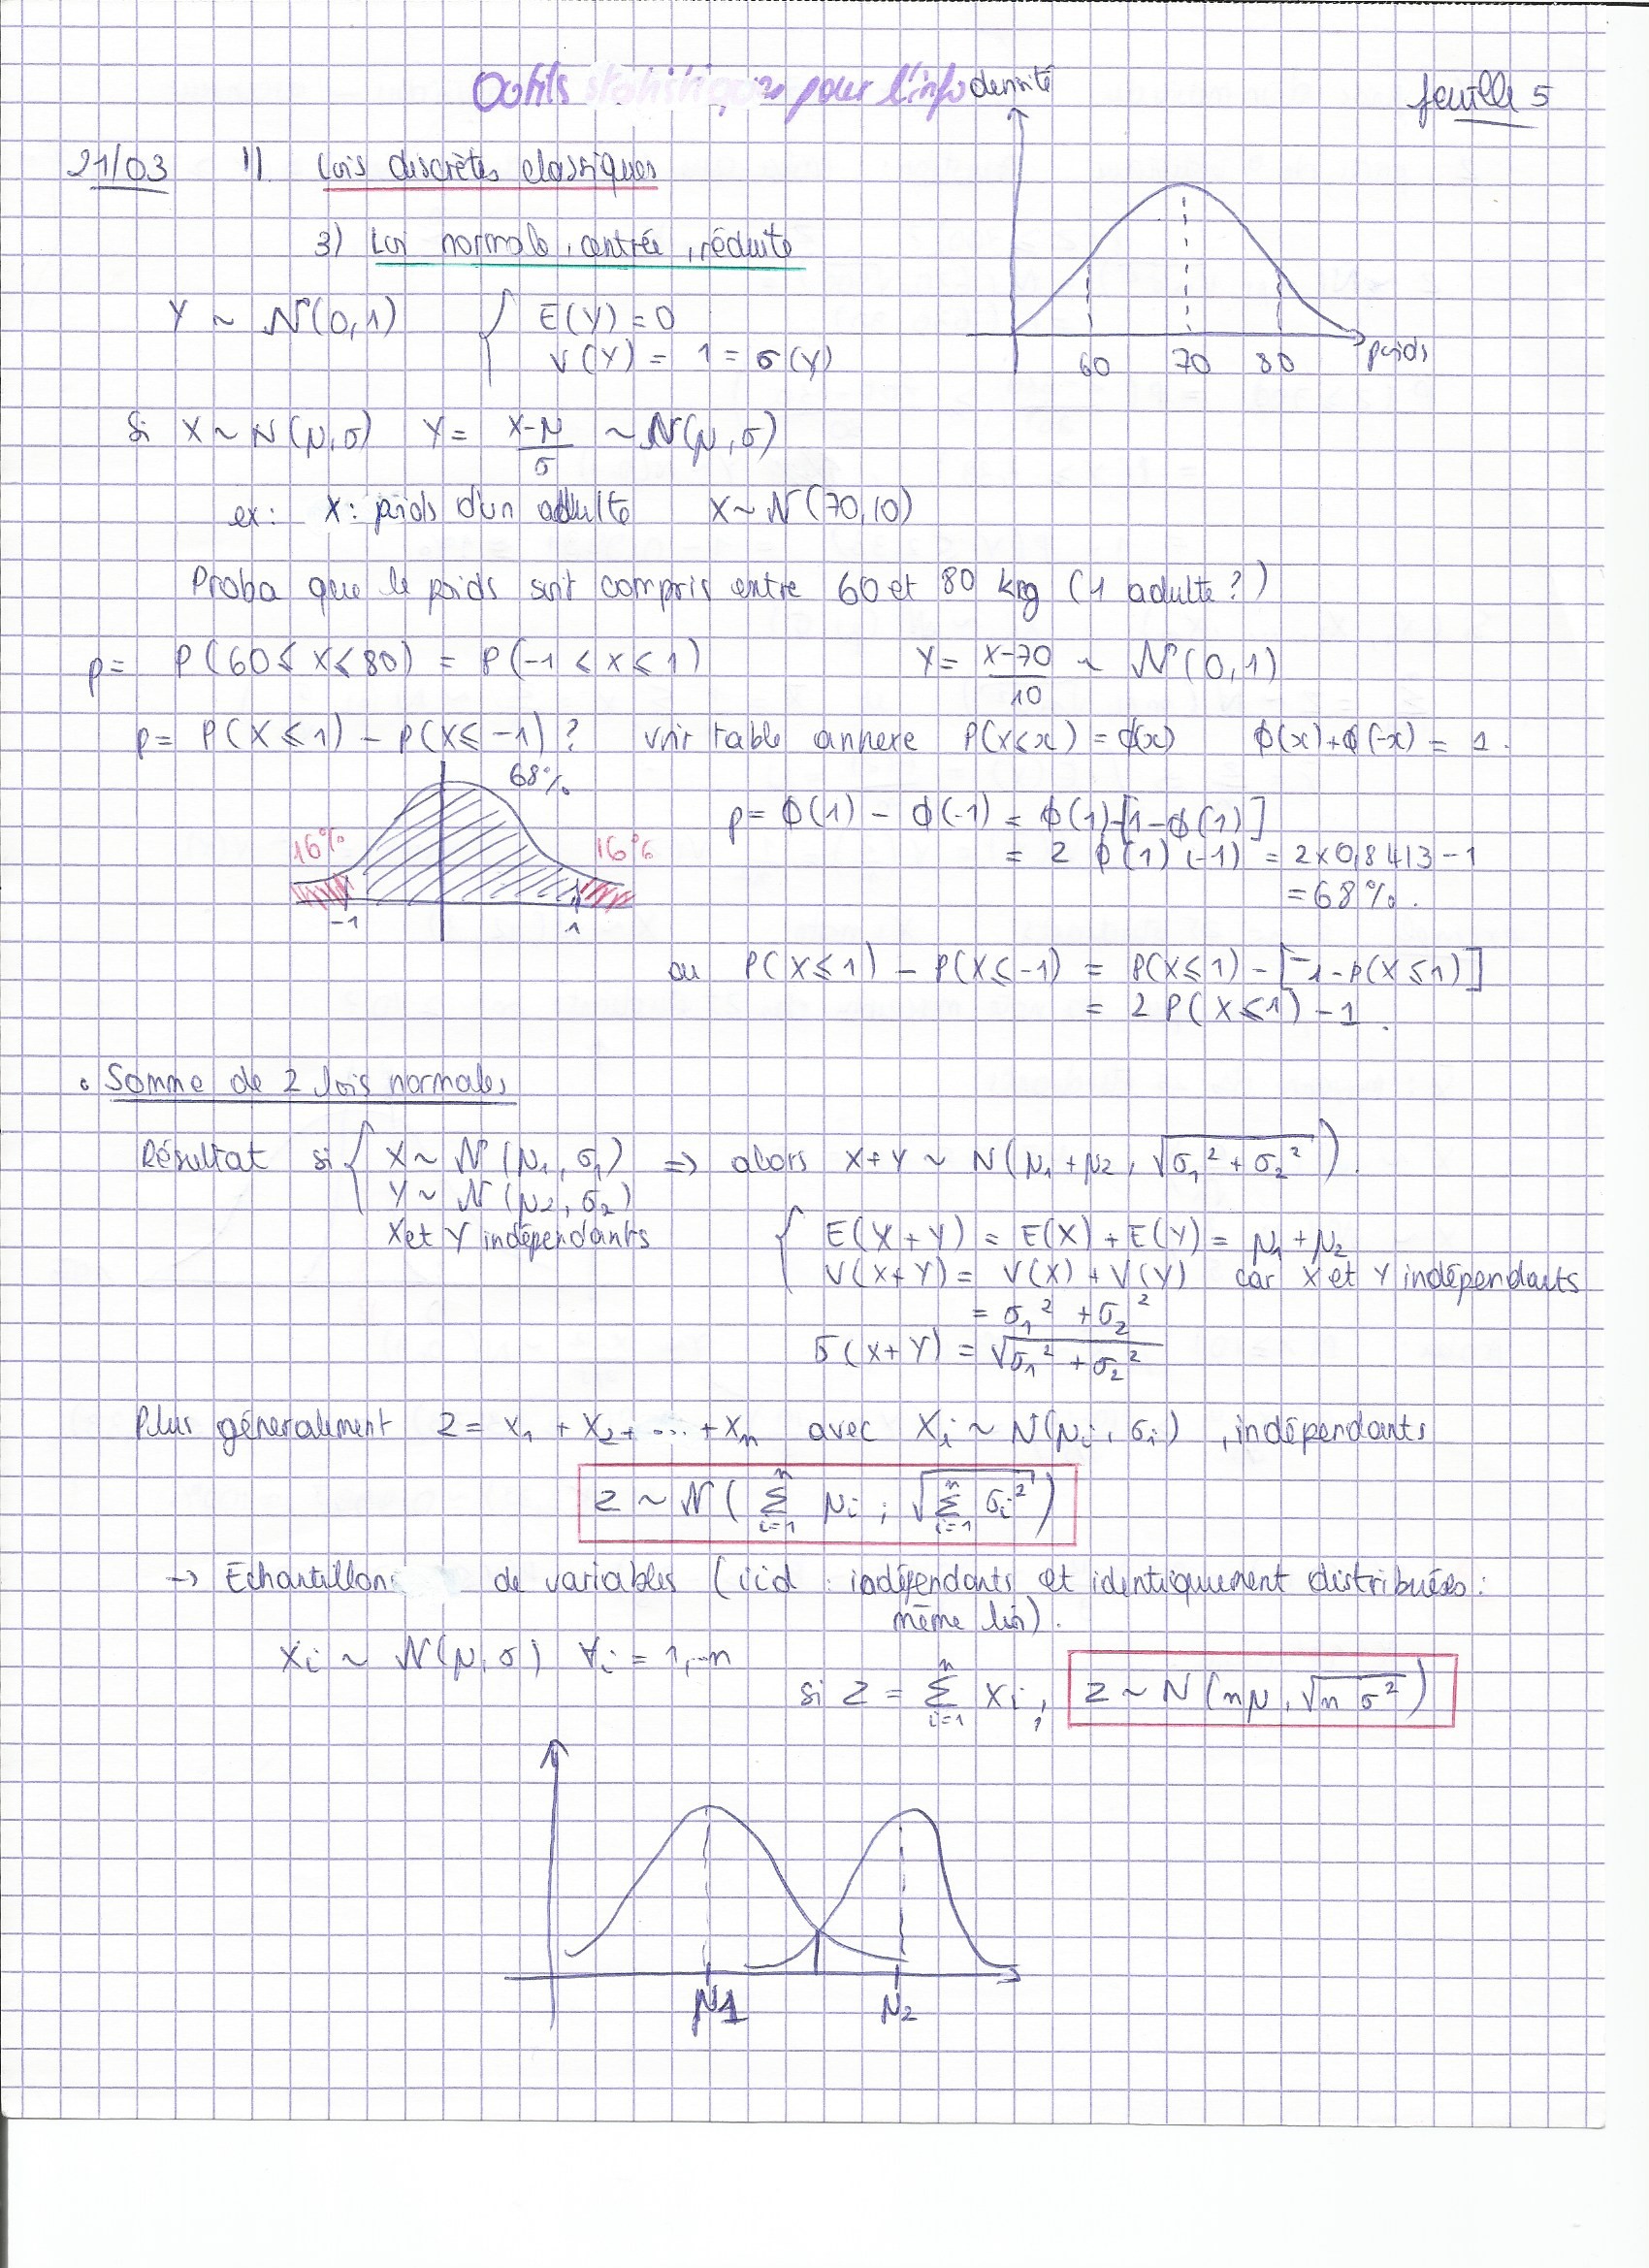 Outils statistiques pour l'info
feuille 5
21/03 II Lois discrètes classiques
densité
60 70 80 poids
3) Loi normale, centrée, réduite
Y ~ N(0,1) { E(Y) = 0
V(Y) = 1 = σ(Y)
Si X ~ N(μ,σ) Y = (X-μ)/σ ~ N(μ,σ)
ex: X: poids d'un adulte X ~ N(70,10)
Proba que le poids soit compris entre 60 et 80 kg (1 adulte?)
p = P(60 ≤ X ≤ 80) = P(-1 ≤ X ≤ 1) Y = (X-70)/10 ~ N(0,1)
p = P(X ≤ 1) - P(X ≤ -1)? voir table annexe P(X≤x) = ϕ(x) ϕ(x)+ϕ(-x) = 1.
68%
16% 16%
-1 1
p = ϕ(1) - ϕ(-1) = ϕ(1)-[1-ϕ(1)]
= 2 ϕ(1) (-1) = 2x0,8413-1
= 68%.
ou P(X≤1) - P(X≤-1) = P(X≤1) - [-1-P(X≤1)]
= 2 P(X≤1) -1.
• Somme de 2 lois normales
Résultat si { X ~ N(μ1,σ1) => alors X+Y ~ N(μ1+μ2, √(σ1²+σ2²)).
Y ~ N(μ2,σ2)
X et Y indépendants
{ E(X+Y) = E(X)+E(Y) = μ1+μ2
V(X+Y) = V(X)+V(Y) car X et Y indépendants
= σ1² + σ2²
σ(X+Y) = √(σ1²+σ2²)
Plus généralement Z = X1 + X2 + ... + Xn avec Xi ~ N(μi,σi), indépendants
Z ~ N( Σ_{i=1}^{n} μi ; √(Σ_{i=1}^{n} σi²) )
-> Echantillons de variables (iid : indépendants et identiquement distribuées :
même loi).
Xi ~ N(μ,σ) ∀i = 1,-n
si Z = Σ_{i=1}^{n} Xi, Z ~ N(nμ, √(n σ²))
μ1 μ2